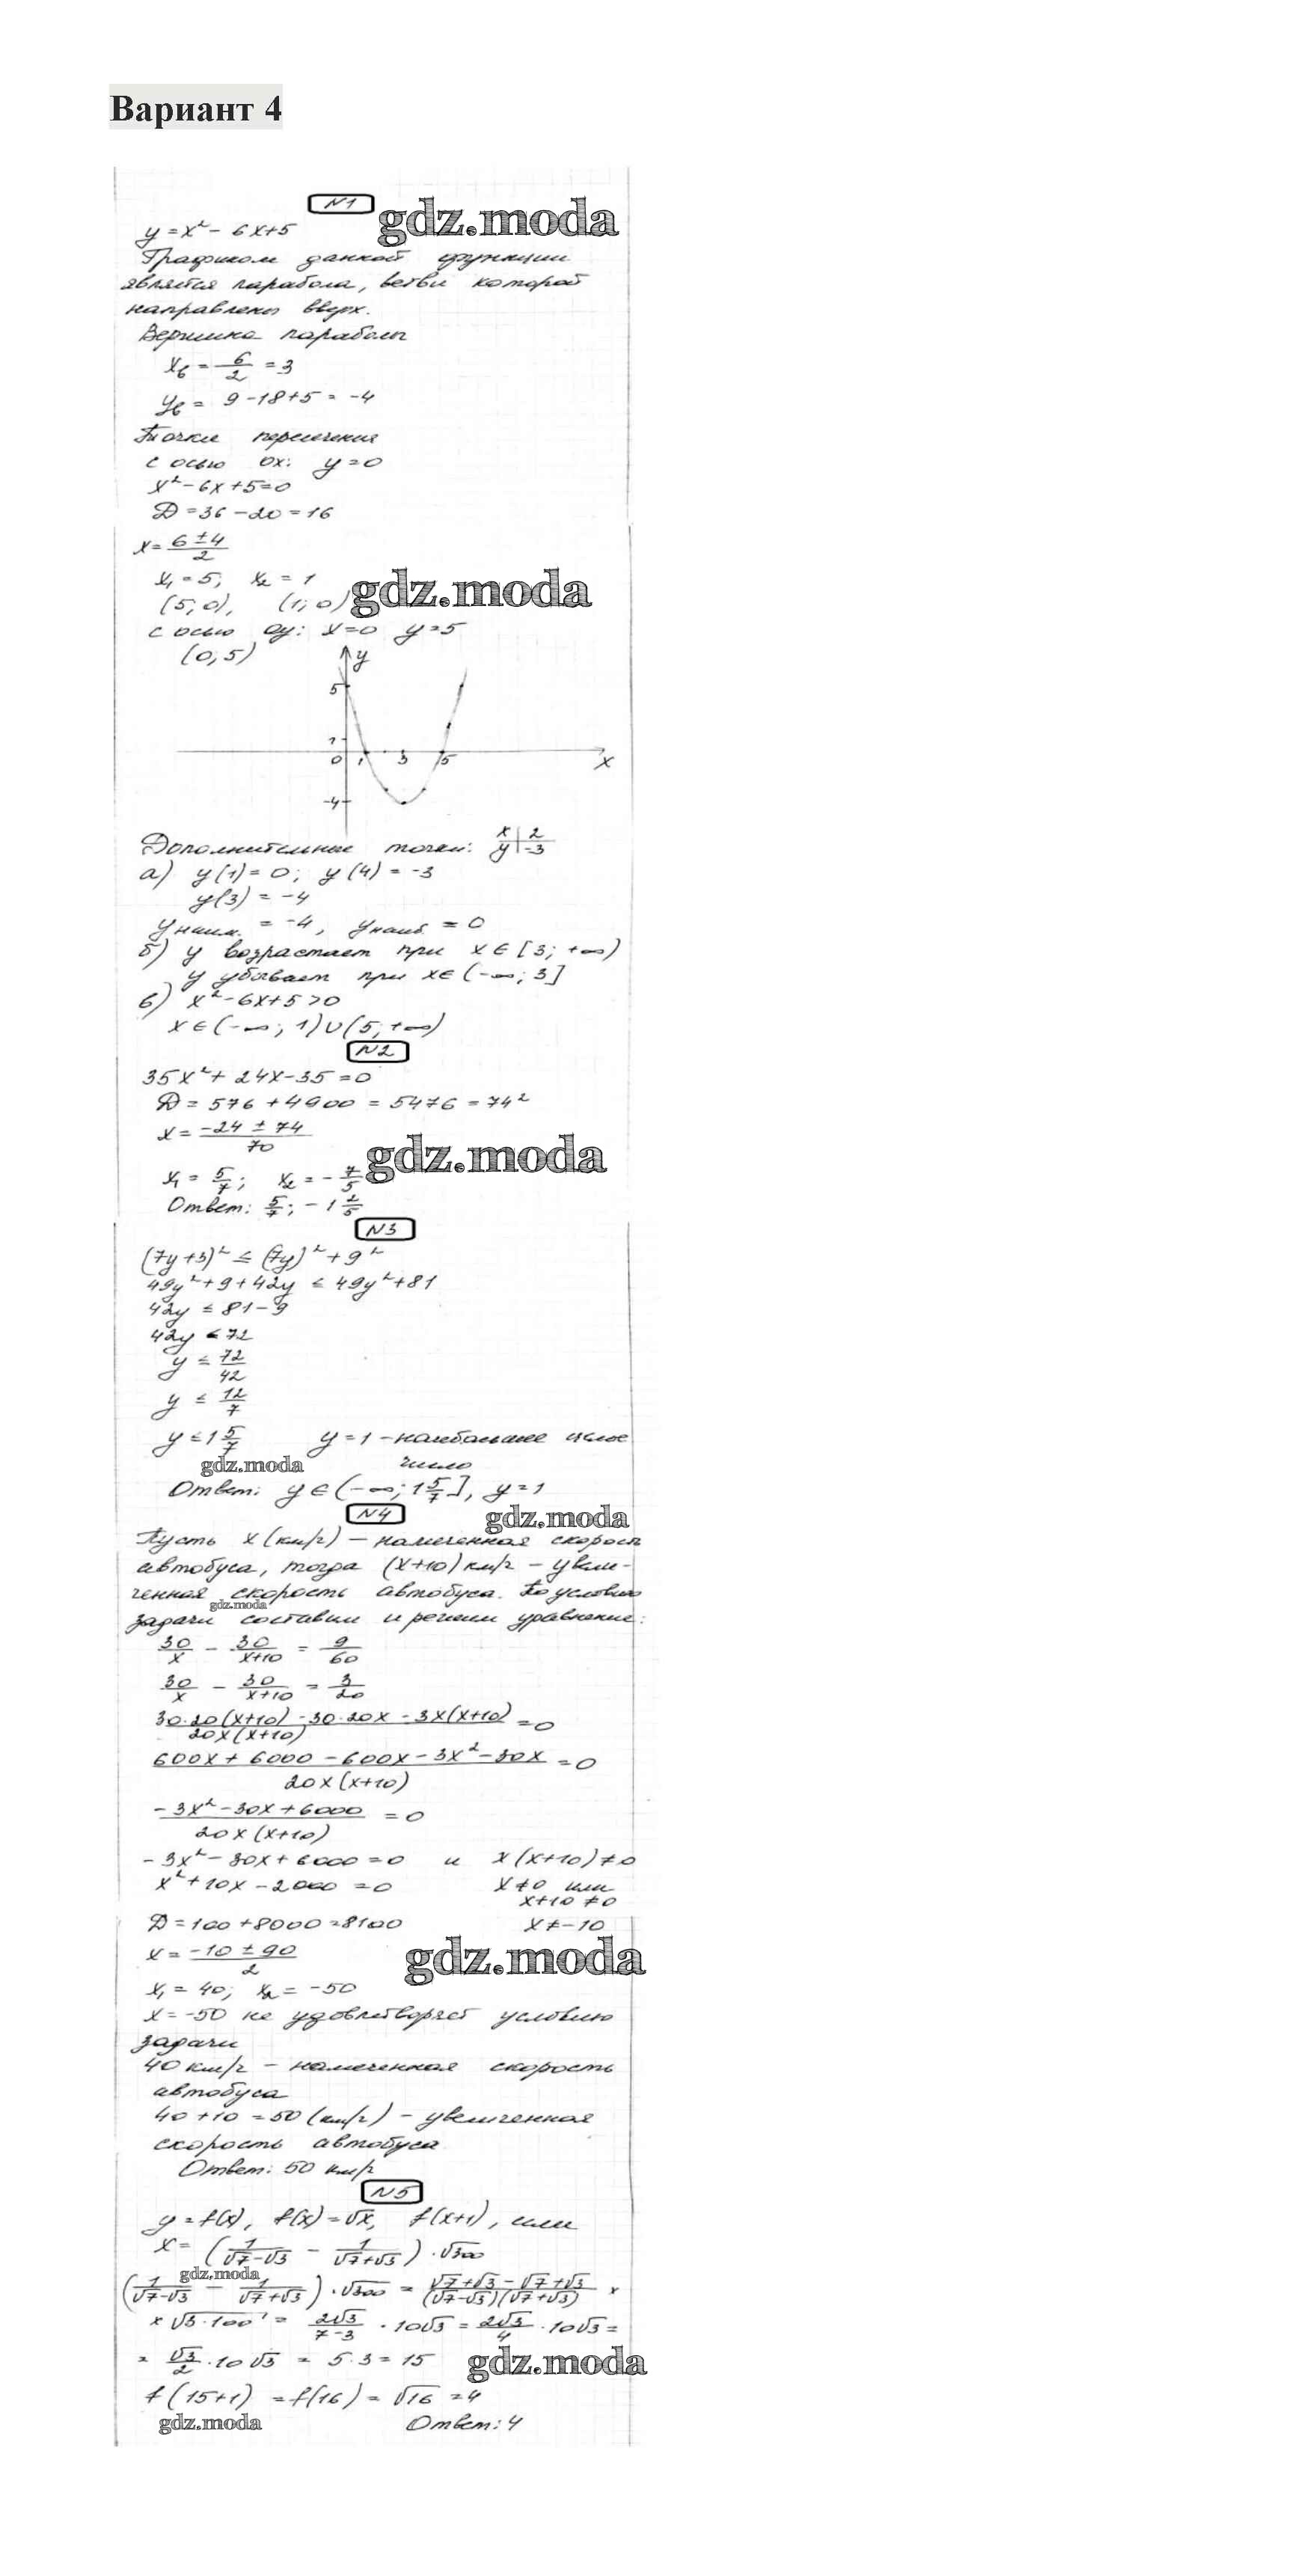 Вариант 4
N1
gdz.moda
y = x² - 6x+5
Графиком данной функции
является парабола, ветви которой
направлены вверх.
Вершина параболы
xв = 6/2 = 3
yв = 9-18+5 = -4
Точки пересечения
с осью ox: y=0
x²-6x+5=0
D = 36-20 = 16
x = (6±4)/2
x₁ = 5; x₂ = 1
(5; 0), (1; 0)
gdz.moda
с осью oy: x=0 y=5
(0; 5)
y
5
1
0 1 3 5 x
-4
Дополнительные точки: x | 2
y | -3
а) y(1) = 0; y(4) = -3
y(3) = -4
yнаим. = -4, yнаиб. = 0
б) y возрастает при x ∈ [3; +∞)
y убывает при x ∈ (-∞; 3]
в) x²-6x+5>0
x ∈ (-∞; 1)∪(5; +∞)
N2
35x² + 24x-35=0
D = 576 + 4900 = 5476 = 74²
x = (-24 ± 74)/70
gdz.moda
x₁ = 5/7; x₂ = - 7/5
Ответ: 5/7; -1 2/5
N3
(7y+3)² ≤ (7y)² + 9²
49y²+9+42y ≤ 49y²+81
42y ≤ 81-9
42y ≤ 72
y ≤ 72/42
y ≤ 12/7
y ≤ 1 5/7 y=1 - наибольшее целое
число
gdz.moda
Ответ: y ∈ (-∞; 1 5/7], y=1
N4
gdz.moda
Пусть x (км/ч) - намеченная скорость
автобуса, тогда (x+10) км/ч - увели-
ченная скорость автобуса. По условию
gdz.moda
задачи составим и решим уравнение:
30/x - 30/(x+10) = 9/60
30/x - 30/(x+10) = 3/20
(30·20(x+10) - 30·20x - 3x(x+10))/(20x(x+10)) = 0
(600x + 6000 - 600x - 3x² - 30x)/(20x(x+10)) = 0
(-3x² - 30x + 6000)/(20x(x+10)) = 0
-3x² - 30x + 6000 = 0 и x(x+10) ≠ 0
x² + 10x - 2000 = 0 x≠0 или
x+10 ≠ 0
D = 100 + 8000 = 8100 x≠-10
x = (-10 ± 90)/2
gdz.moda
x₁ = 40; x₂ = -50
x = -50 не удовлетворяет условию
задачи
40 км/ч - намеченная скорость
автобуса
40+10 = 50 (км/ч) - увеличенная
скорость автобуса
Ответ: 50 км/ч
N5
y = f(x), f(x) = √x, f(x+1), если
x = (1/(√7-√3) - 1/(√7+√3)) · √300
gdz.moda
(1/(√7-√3) - 1/(√7+√3)) · √300 = (√7+√3-√7+√3)/((√7-√3)(√7+√3)) ×
× √3·100 = 2√3/(7-3) · 10√3 = 2√3/4 · 10√3 =
= √3/2 · 10√3 = 5·3 = 15
gdz.moda
f(15+1) = f(16) = √16 = 4
gdz.moda
Ответ: 4